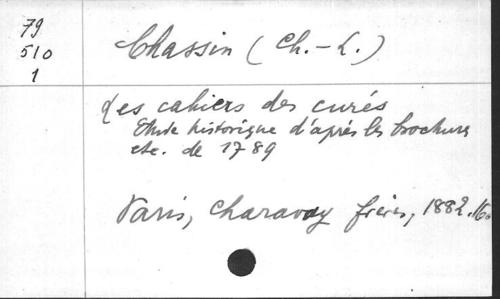 79
510
1
Chassin (Ch.-L.)
Les cahiers des curés
Etude historique d'après les brochures
etc. de 1789
Paris, Charavay frères, 1882. 16o